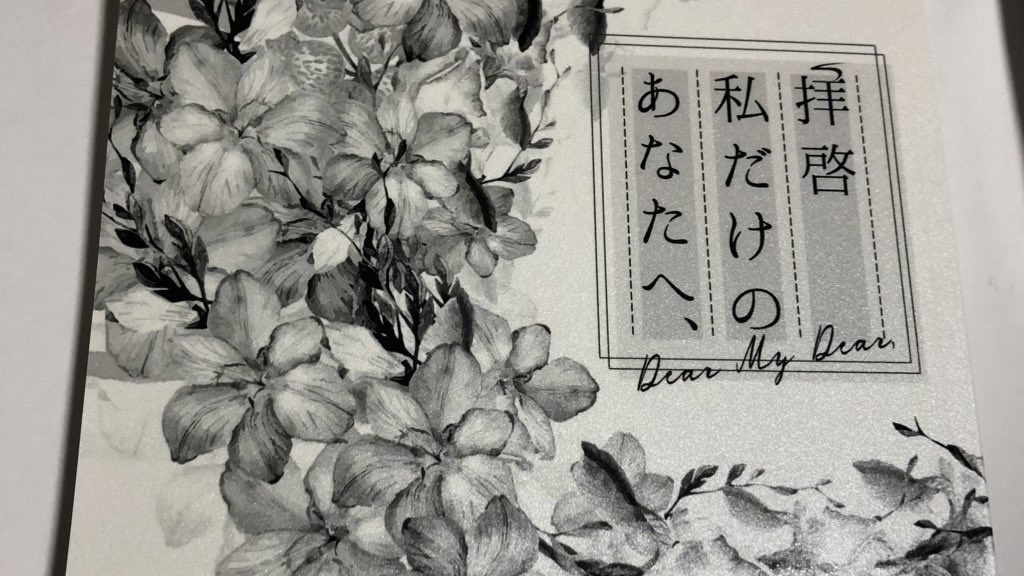 拝啓
私だけの
あなたへ、
Dear My Dear,